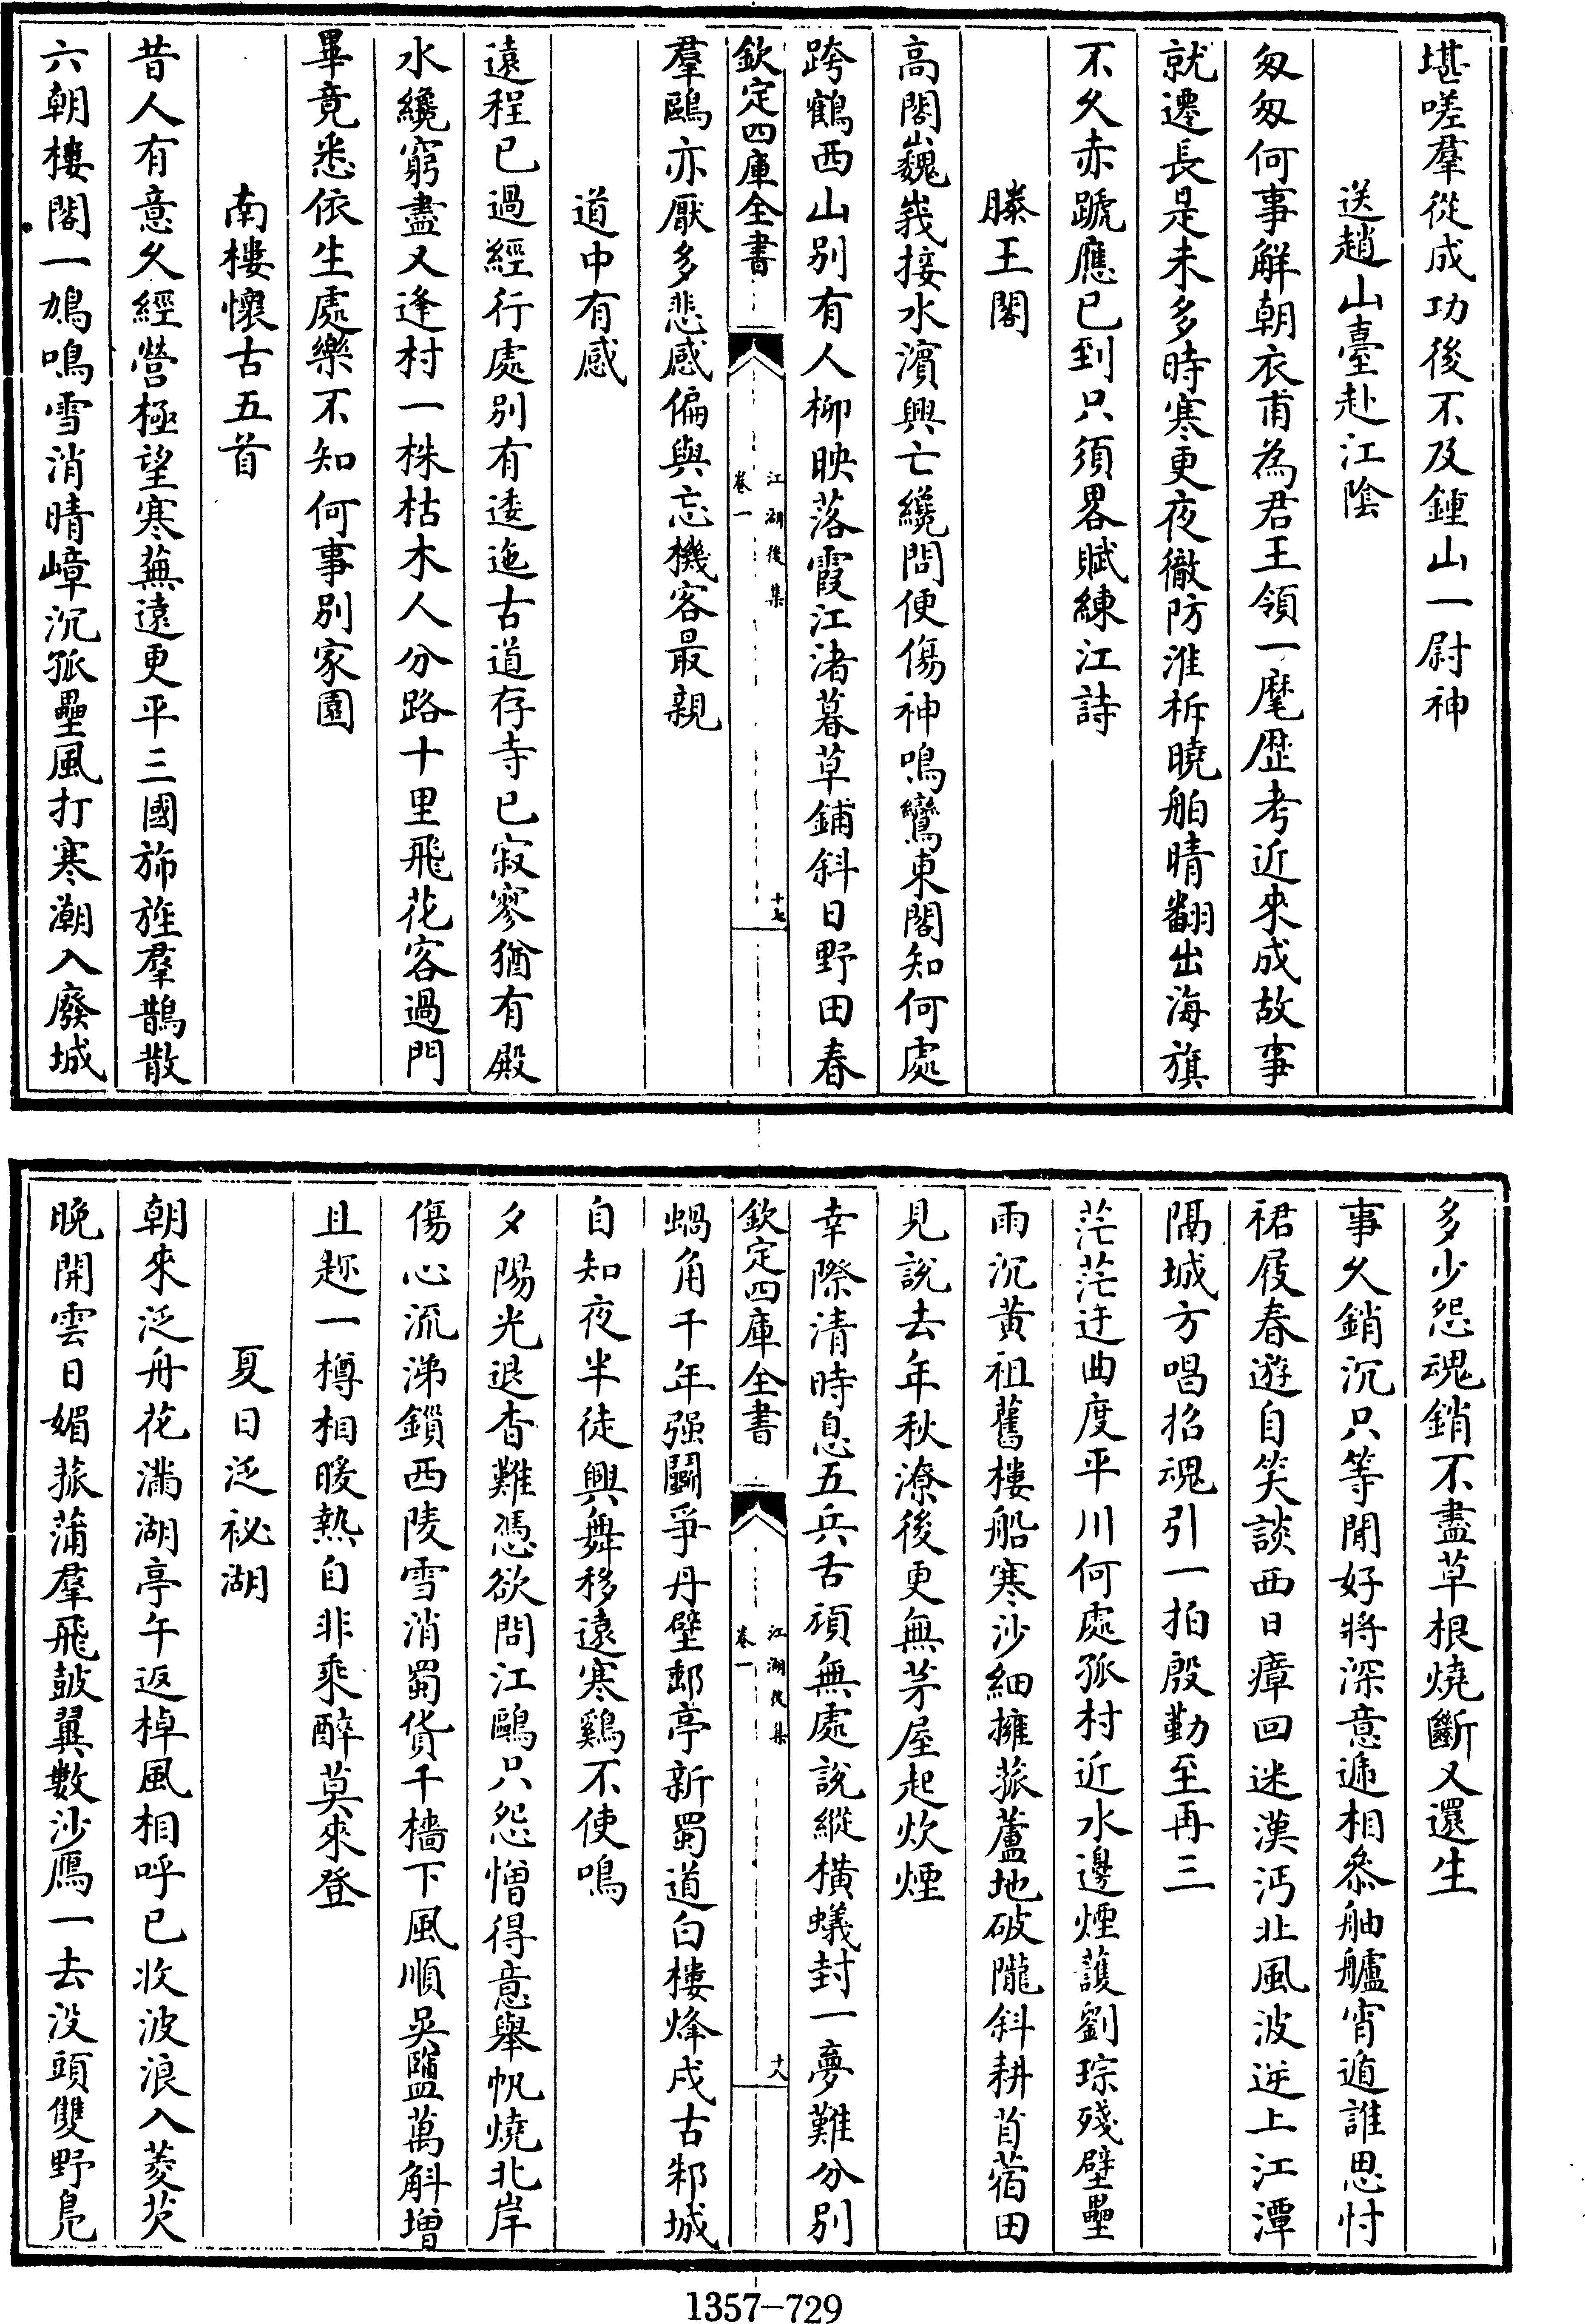 堪嗟羣從成功後不及鍾山一尉神
送趙山臺赴江隂
匆匆何事解朝衣甫為君王領一麾歴考近來成故事
就遷長是未多時寒更夜徹防淮柝曉舶晴翻出海旗
不久赤蹏應已到只須畧賦練江詩
滕王閣
高閣巍峩接水濱興亡纔問便傷神鳴鸞東閣知何處
跨鶴西山别有人柳映落霞江渚暮草鋪斜日野田春
欽定四庫全書
江湖後集
卷一
十七
羣鷗亦厭多悲感偏與忘機客最親
道中有感
遠程已過經行處别有逶迤古道存寺已寂寥猶有殿
水纔窮盡又逢村一株枯木人分路十里飛花客過門
畢竟悉依生處樂不知何事别家園
南樓懷古五首
昔人有意久經營極望寒蕪遠更平三國斾旌羣鵲散
六朝樓閣一鳩鳴雪消晴嶂沉孤壘風打寒潮入廢城
多少怨魂銷不盡草根燒斷又還生
事久銷沉只等閒好將深意遞相叅舳艫宵遁誰思忖
裙屐春遊自笑談西日瘴回迷漢沔北風波逆上江潭
隔城方唱招魂引一拍殷勤至再三
茫茫迂曲度平川何處孤村近水邊煙護劉琮殘壁壘
雨沉黄祖舊樓船寒沙細擁菰蘆地破隴斜耕苜蓿田
見說去年秋潦後更無茅屋起炊煙
幸際清時息五兵舌頑無處說縱横蟻封一夢難分别
欽定四庫全書
江湖後集
卷一
十八
蝸角千年强鬭爭丹壁郵亭新蜀道白樓烽戍古邾城
自知夜半徒興舞移遠寒鷄不使鳴
夕陽光退杳難憑欲問江鷗只怨憎得意舉帆燒北岸
傷心流涕鎻西陵雪消蜀貨千檣下風順吳鹽萬斛增
且趂一樽相暖熱自非乘醉莫來登
夏日泛祕湖
朝來泛舟花滿湖亭午返棹風相呼已收波浪入菱芡
晚開雲日媚菰蒲羣飛鼓翼數沙鴈一去没頭雙野鳬
1357-729